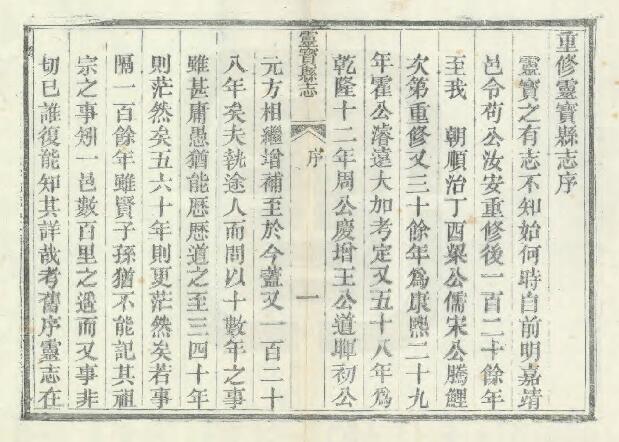 重修靈寶縣志序
靈寶之有志不知始何時自前明嘉靖
邑令苟公汝安重修後一百二十餘年
至我　朝順治丁酉梁公儒宋公騰鯉
次第重修又三十餘年爲康熙二十九
年霍公濬遠大加考定又五十八年爲
乾隆十二年周公慶增王公道暉初公
靈寶縣志
序
一
元方相繼增補至於今蓋又一百二十
八年矣夫執途人而問以十數年之事
雖甚庸愚猶能歷歷道之至三四十年
則茫然矣五六十年則更茫然矣若事
隔一百餘年雖賢子孫猶不能記其祖
宗之事矧一邑數百里之遥而又事非
切已誰復能知其詳哉考舊序靈志在